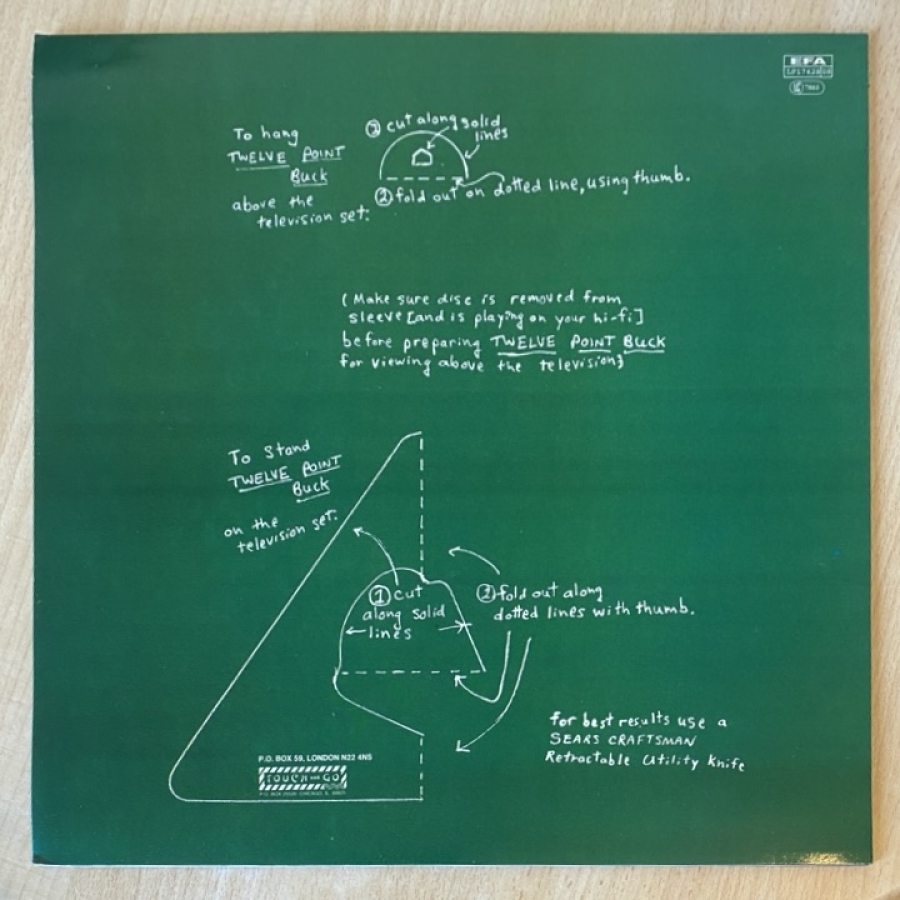 EFA
To hang
TWELVE POINT
Buck
above the
television set:
① cut along solid
lines
② fold out on dotted line, using thumb.
(Make sure disc is removed from
sleeve [and is playing on your hi-fi]
before preparing TWELVE POINT Buck
for viewing above the television}
To Stand
TWELVE POINT
Buck
on the
television set:
① cut
along solid
lines
② fold out along
dotted lines with thumb.
for best results use a
SEARS CRAFTSMAN
Retractable Utility Knife
P.O. BOX 59, LONDON N22 4NS
TOUCH AND GO